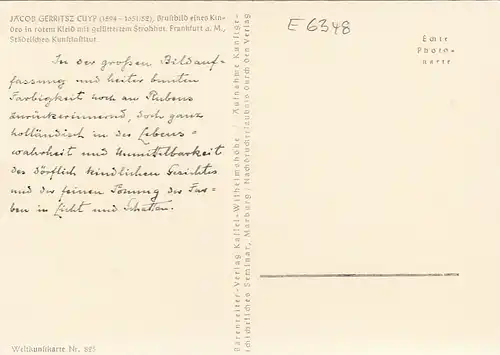 JACOB GERRITSZ CUYP (1594–1651/52), Brustbild eines Kin-
des in rotem Kleid mit gefüttertem Strohhut. Frankfurt a. M.,
Städelsches Kunstinstitut
In der großen Bildauf-
fassung und heiter bunten
Farbigkeit noch an Rubens
zurückerinnernd, doch ganz
holländisch in der Lebens-
wahrheit und Unmittelbarkeit
des dörflich kindlichen Gesichtes
und der feinen Tönung der Far-
ben in Licht und Schatten.
Weltkunstkarte Nr. 825
Bärenreiter-Verlag Kassel-Wilhelmshöhe / Aufnahme Kunstge-
schichtliches Seminar, Marburg / Nachdruckerlaubnis durch den Verlag
E 6348
Echte
Photo-
karte